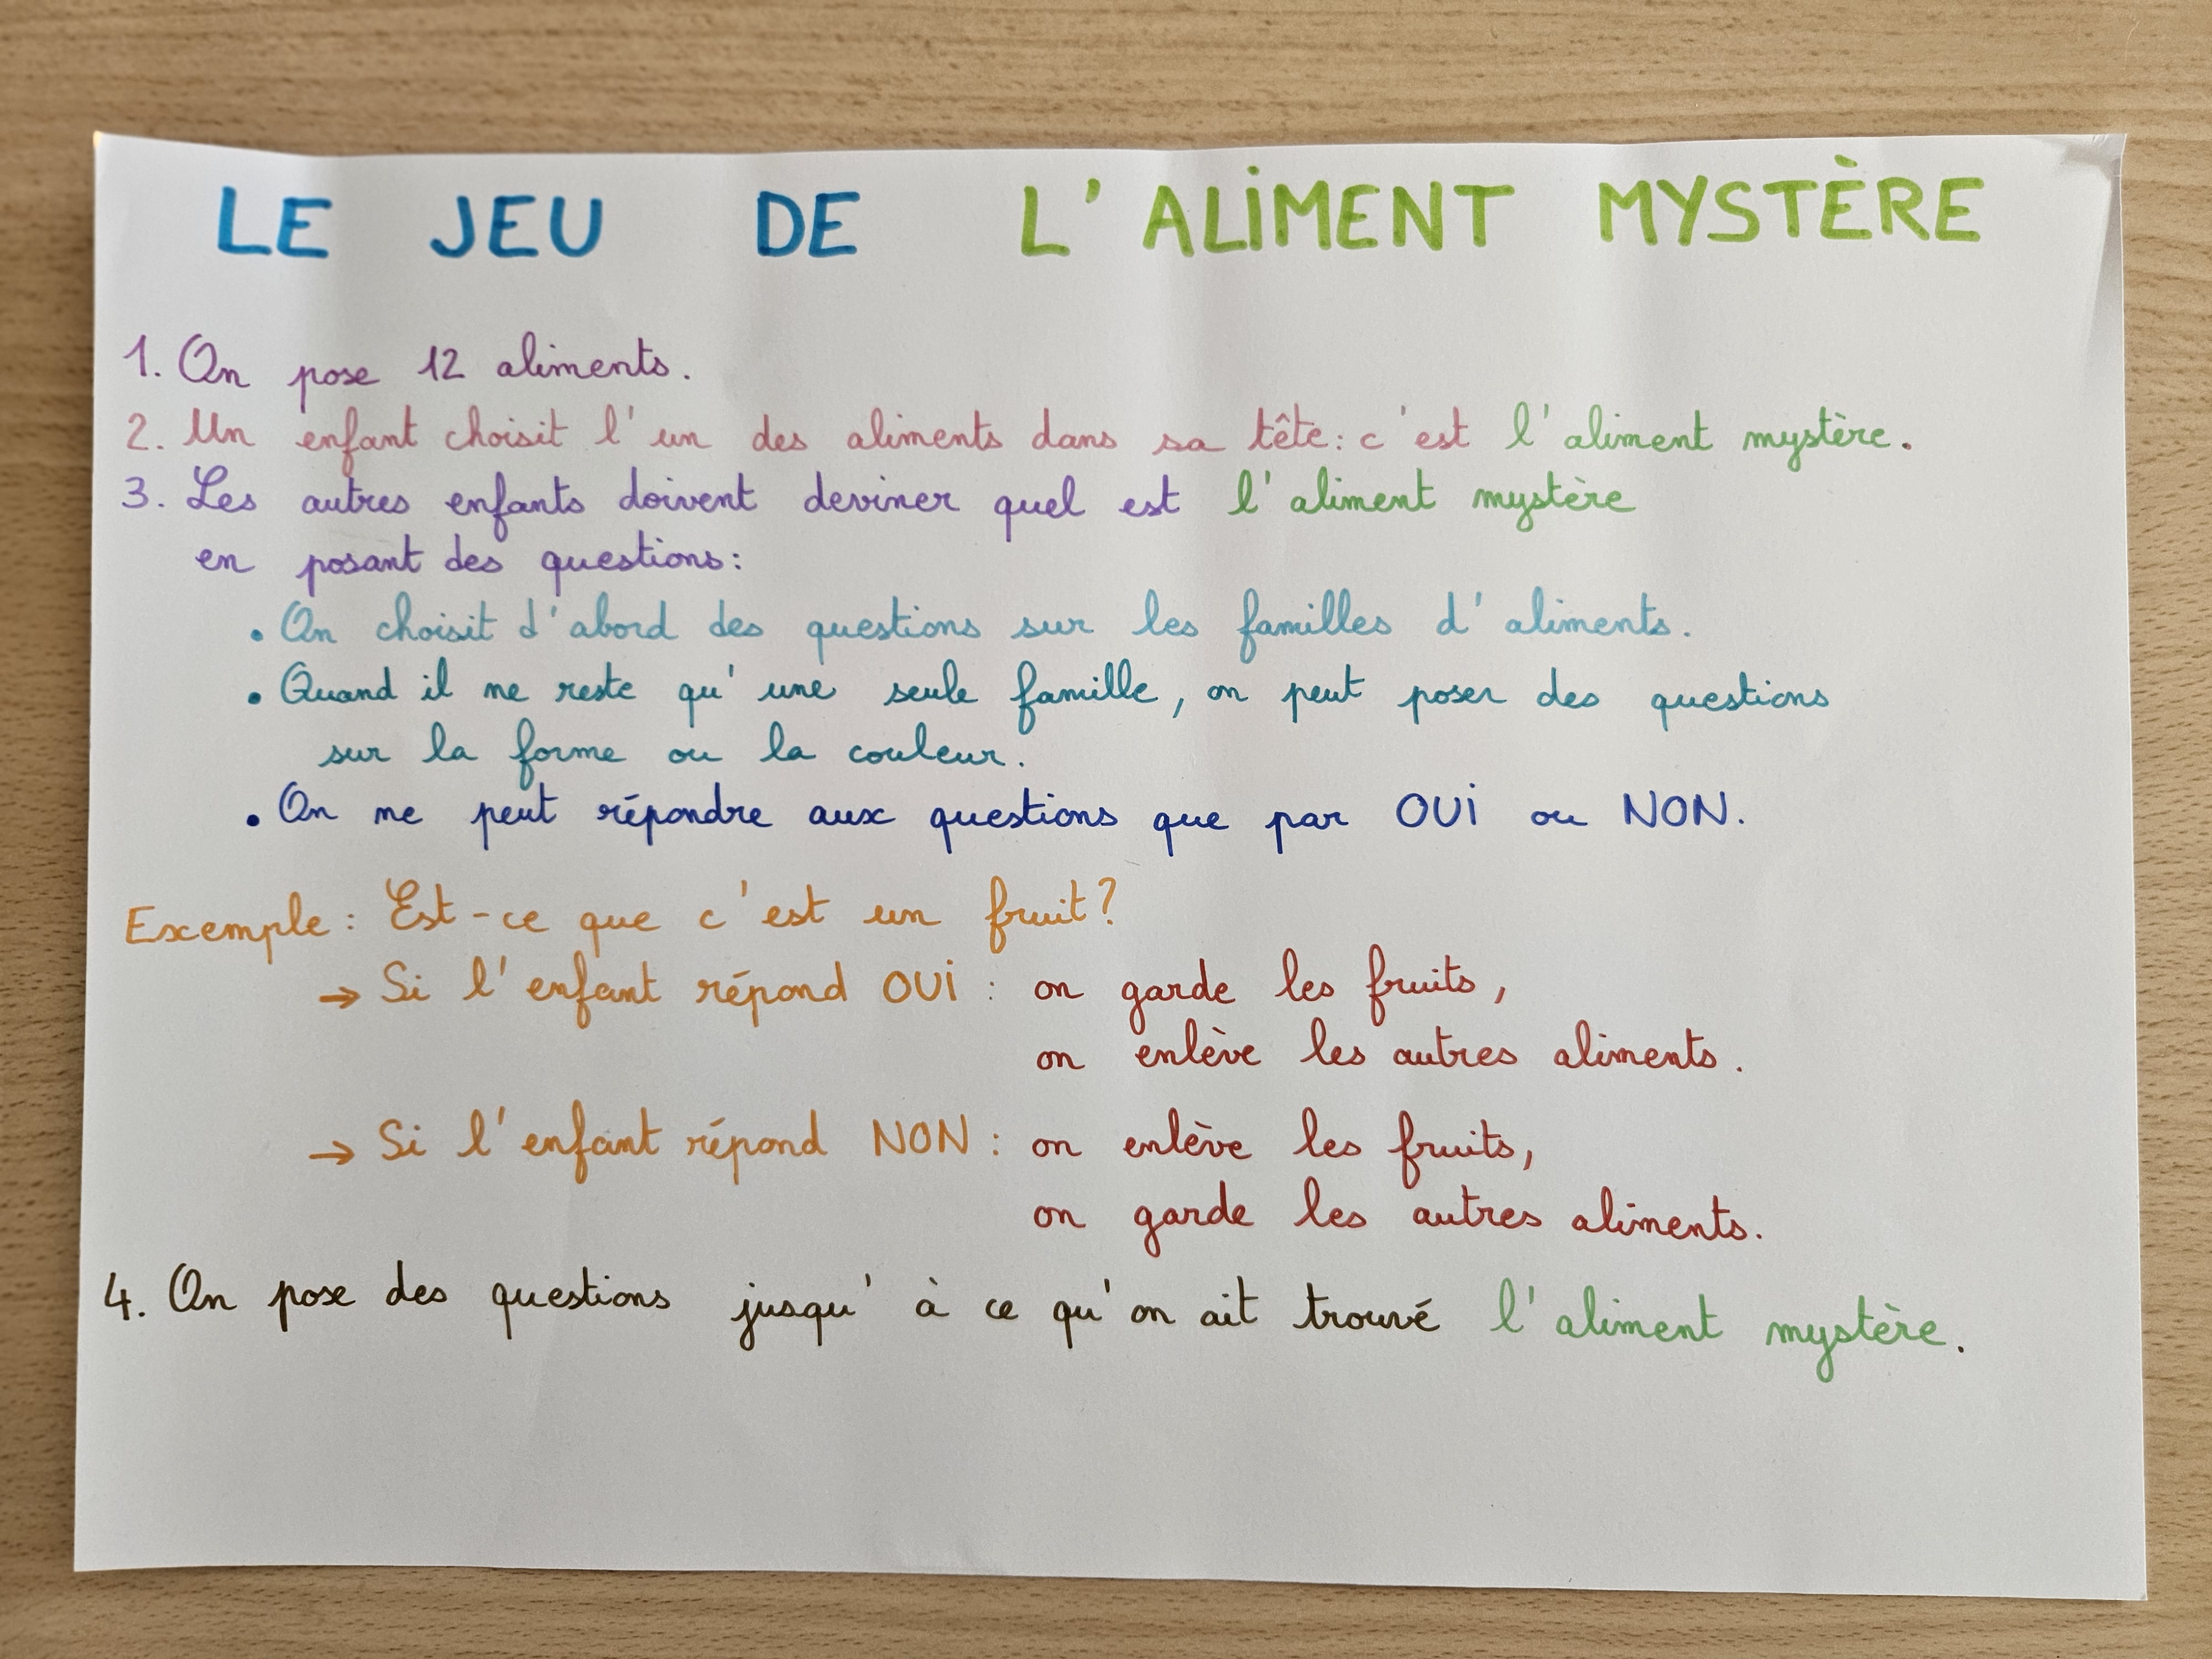 LE JEU DE L'ALIMENT MYSTÈRE
1. On pose 12 aliments.
2. Un enfant choisit l'un des aliments dans sa tête : c'est l'aliment mystère.
3. Les autres enfants doivent deviner quel est l'aliment mystère
en posant des questions :
• On choisit d'abord des questions sur les familles d'aliments.
• Quand il ne reste qu'une seule famille, on peut poser des questions
sur la forme ou la couleur.
• On ne peut répondre aux questions que par OUI ou NON.
Exemple : Est-ce que c'est un fruit ?
→ Si l'enfant répond OUI : on garde les fruits,
on enlève les autres aliments.
→ Si l'enfant répond NON : on enlève les fruits,
on garde les autres aliments.
4. On pose des questions jusqu'à ce qu'on ait trouvé l'aliment mystère.